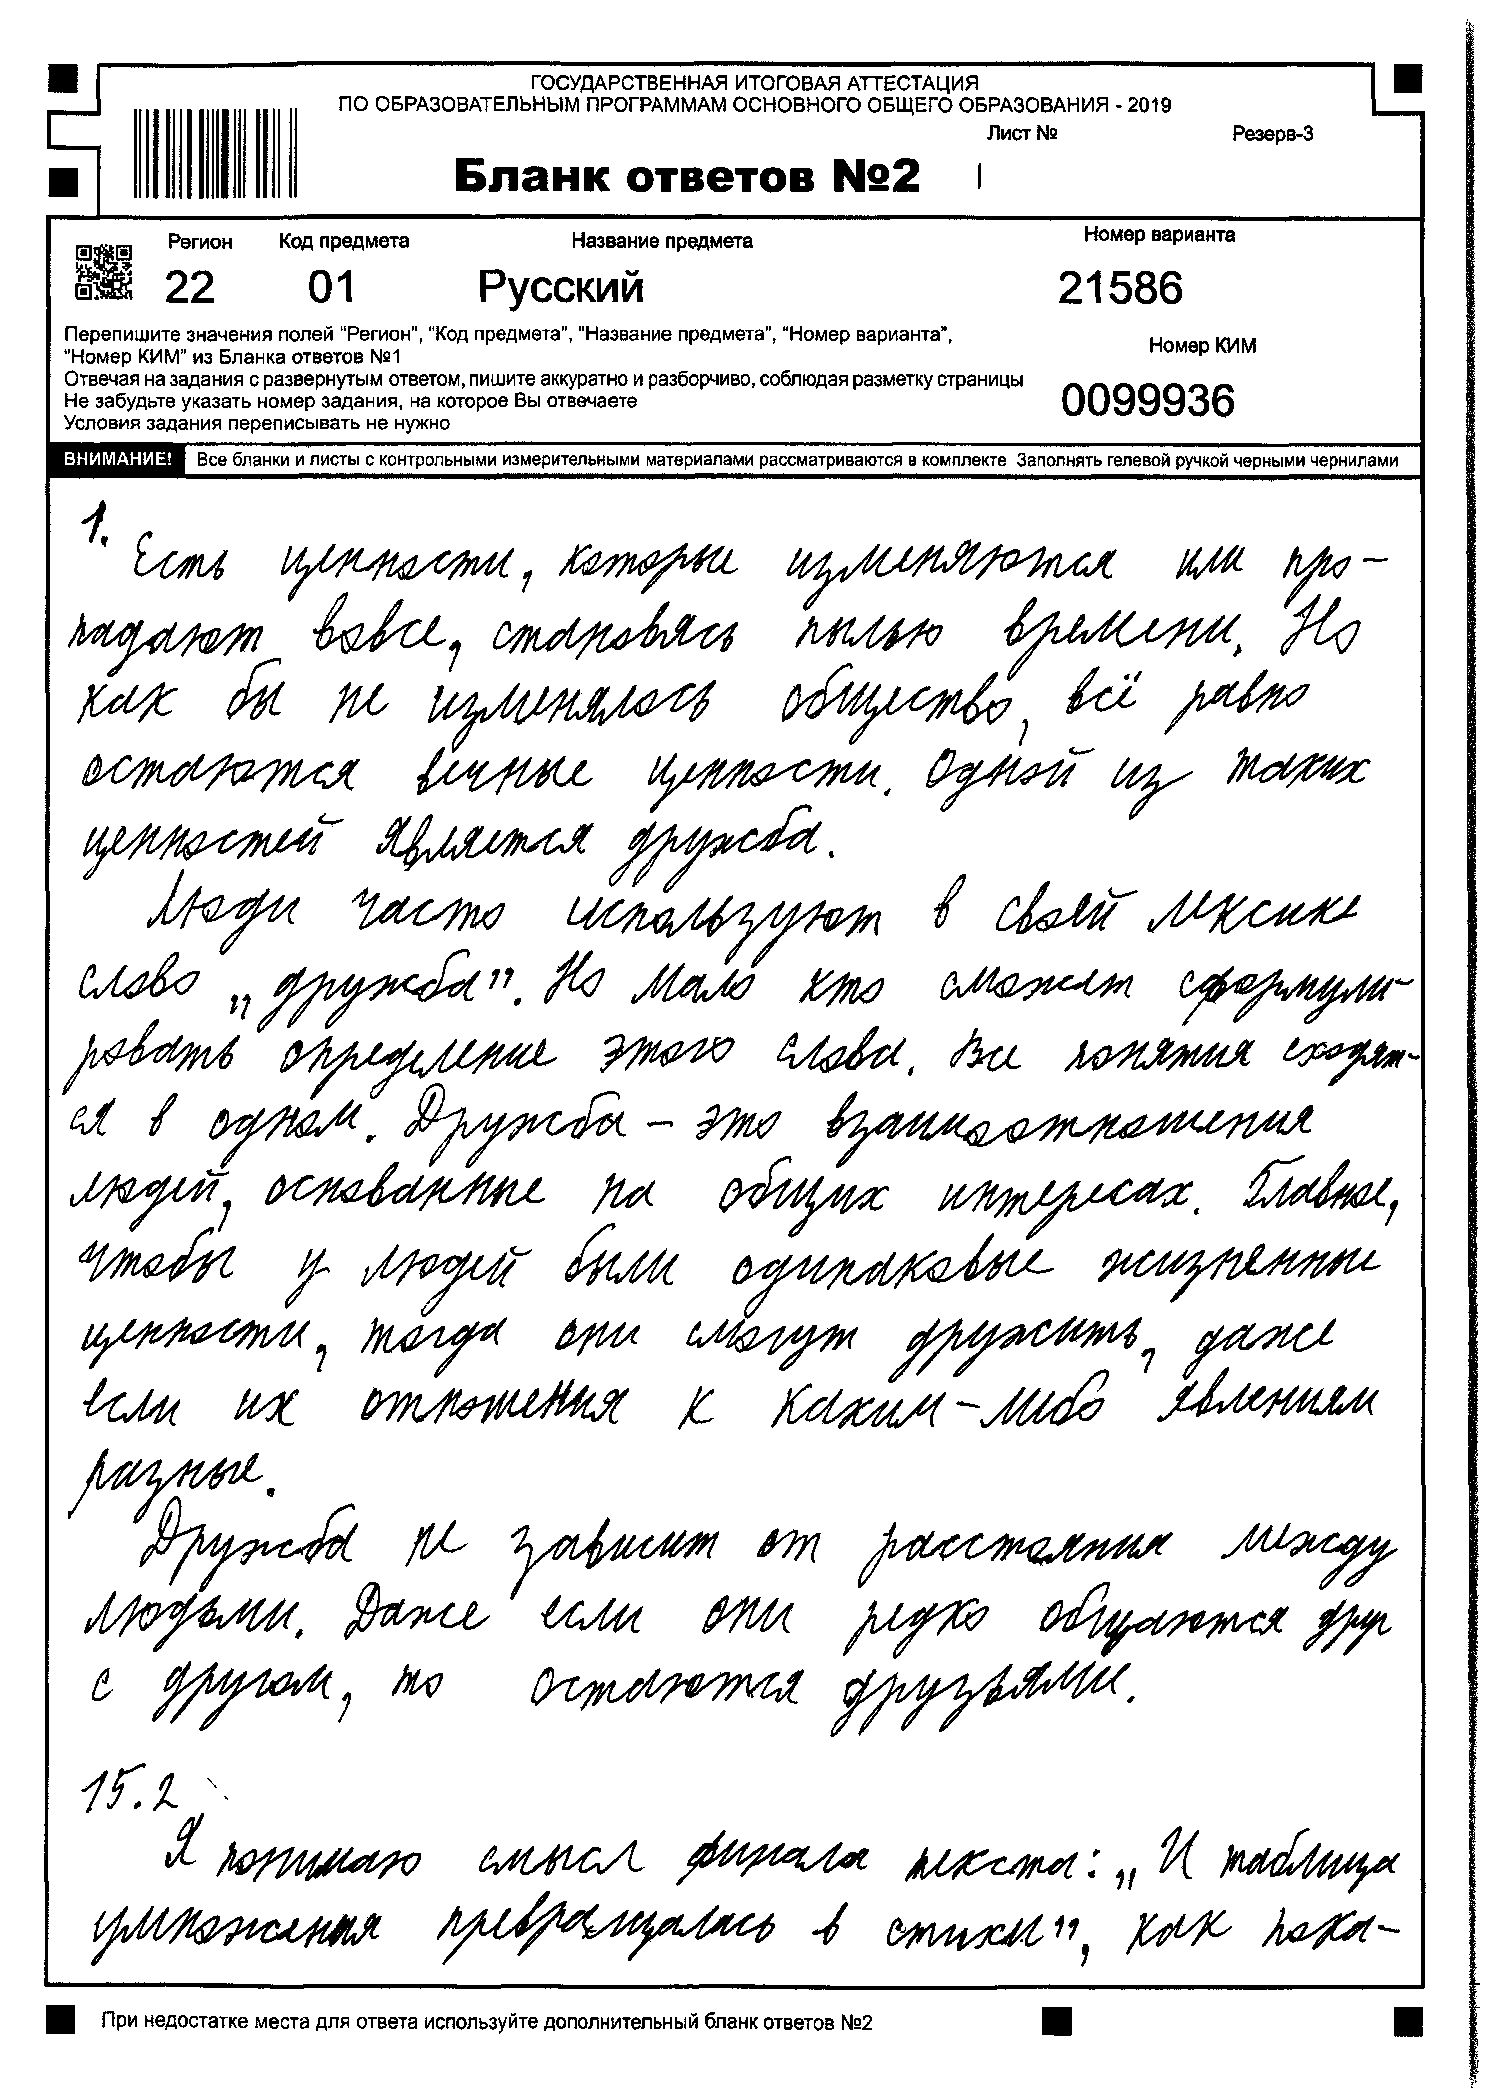 ГОСУДАРСТВЕННАЯ ИТОГОВАЯ АТТЕСТАЦИЯ
ПО ОБРАЗОВАТЕЛЬНЫМ ПРОГРАММАМ ОСНОВНОГО ОБЩЕГО ОБРАЗОВАНИЯ - 2019
Лист №
Резерв-3
Бланк ответов №2
Регион
Код предмета
Название предмета
Номер варианта
22
01
Русский
21586
Перепишите значения полей "Регион", "Код предмета", "Название предмета", "Номер варианта",
"Номер КИМ" из Бланка ответов №1
Номер КИМ
Отвечая на задания с развернутым ответом, пишите аккуратно и разборчиво, соблюдая разметку страницы
Не забудьте указать номер задания, на которое Вы отвечаете
0099936
Условия задания переписывать не нужно
ВНИМАНИЕ! Все бланки и листы с контрольными измерительными материалами рассматриваются в комплекте Заполнять гелевой ручкой черными чернилами
1.
Есть ценности, которые изменяются или про-
падают вовсе, становясь пылью времени. Но
как бы не изменялось общество, всё равно
остаются вечные ценности. Одной из таких
ценностей является дружба.
Люди часто используют в своей лексике
слово „дружба". Но мало кто сможет сформули-
ровать определение этого слова. Все понятия сходят-
ся в одном. Дружба – это взаимоотношения
людей, основанные на общих интересах. Главное,
чтобы у людей были одинаковые жизненные
ценности, тогда они смогут дружить, даже
если их отношения к каким-либо явлениям
разные.
Дружба не зависит от расстояния между
людьми. Даже если они редко общаются друг
с другом, то остаются друзьями.
15.2
Я понимаю смысл финала текста: „И таблица
умножения превращалась в стихи", как пока-
При недостатке места для ответа используйте дополнительный бланк ответов №2